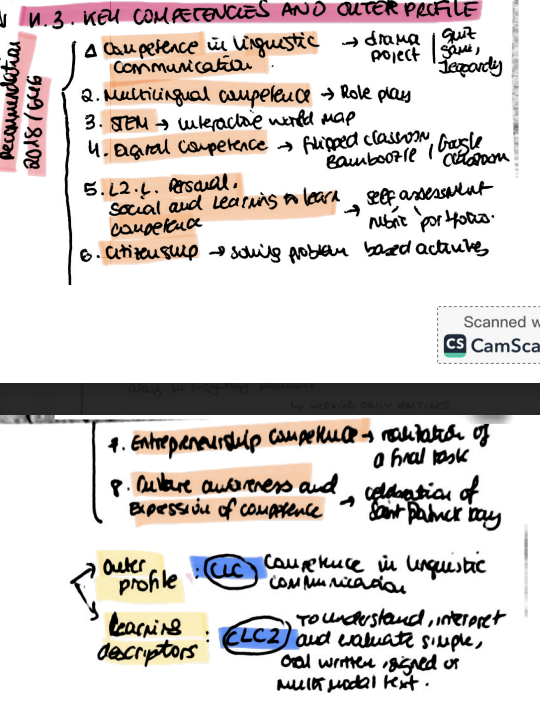 4.3. KEY COMPETENCIES AND OUTER PROFILE
Recommendation
2018/646
1. Competence in linguistic → drama | quiz
communication. project | game,
Jeopardy
2. Multilingual competence → Role play
3. STEM → interactive world map
4. Digital competence → Flipped classroom, | Google
Bamboozle | classroom
5. L2.L. Personal,
Social and Learning to learn → self assessment
competence rubric portfolio.
6. Citizenship → solving problem based activities
Scanned w
CS CamSca
WORKING DAILY ROUTINES
7. Entrepreneurship competence → realitation of
a final task
8. Culture awareness and → celebration of
expression of competence Saint Patrick day
outer : CLC competence in linguistic
profile communication
learning : CLC2 To understand, interpret
descriptors and evaluate simple,
oral written, signed or
multimodal text.